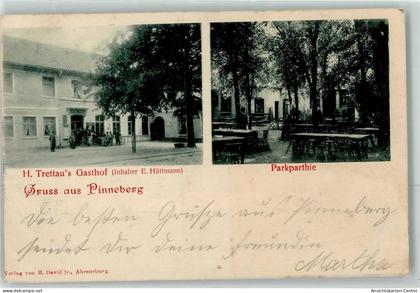 H. Trettau's Gasthof (Inhaber E. Hüttmann)
Parkparthie
Gruss aus Pinneberg
Die besten Grüße aus Pinneberg
sendet dir deine Freundin
Martha
Verlag von H. David jr., Ahrensburg
www.ansichtskarten-center.de
Ansichtskarten-Center